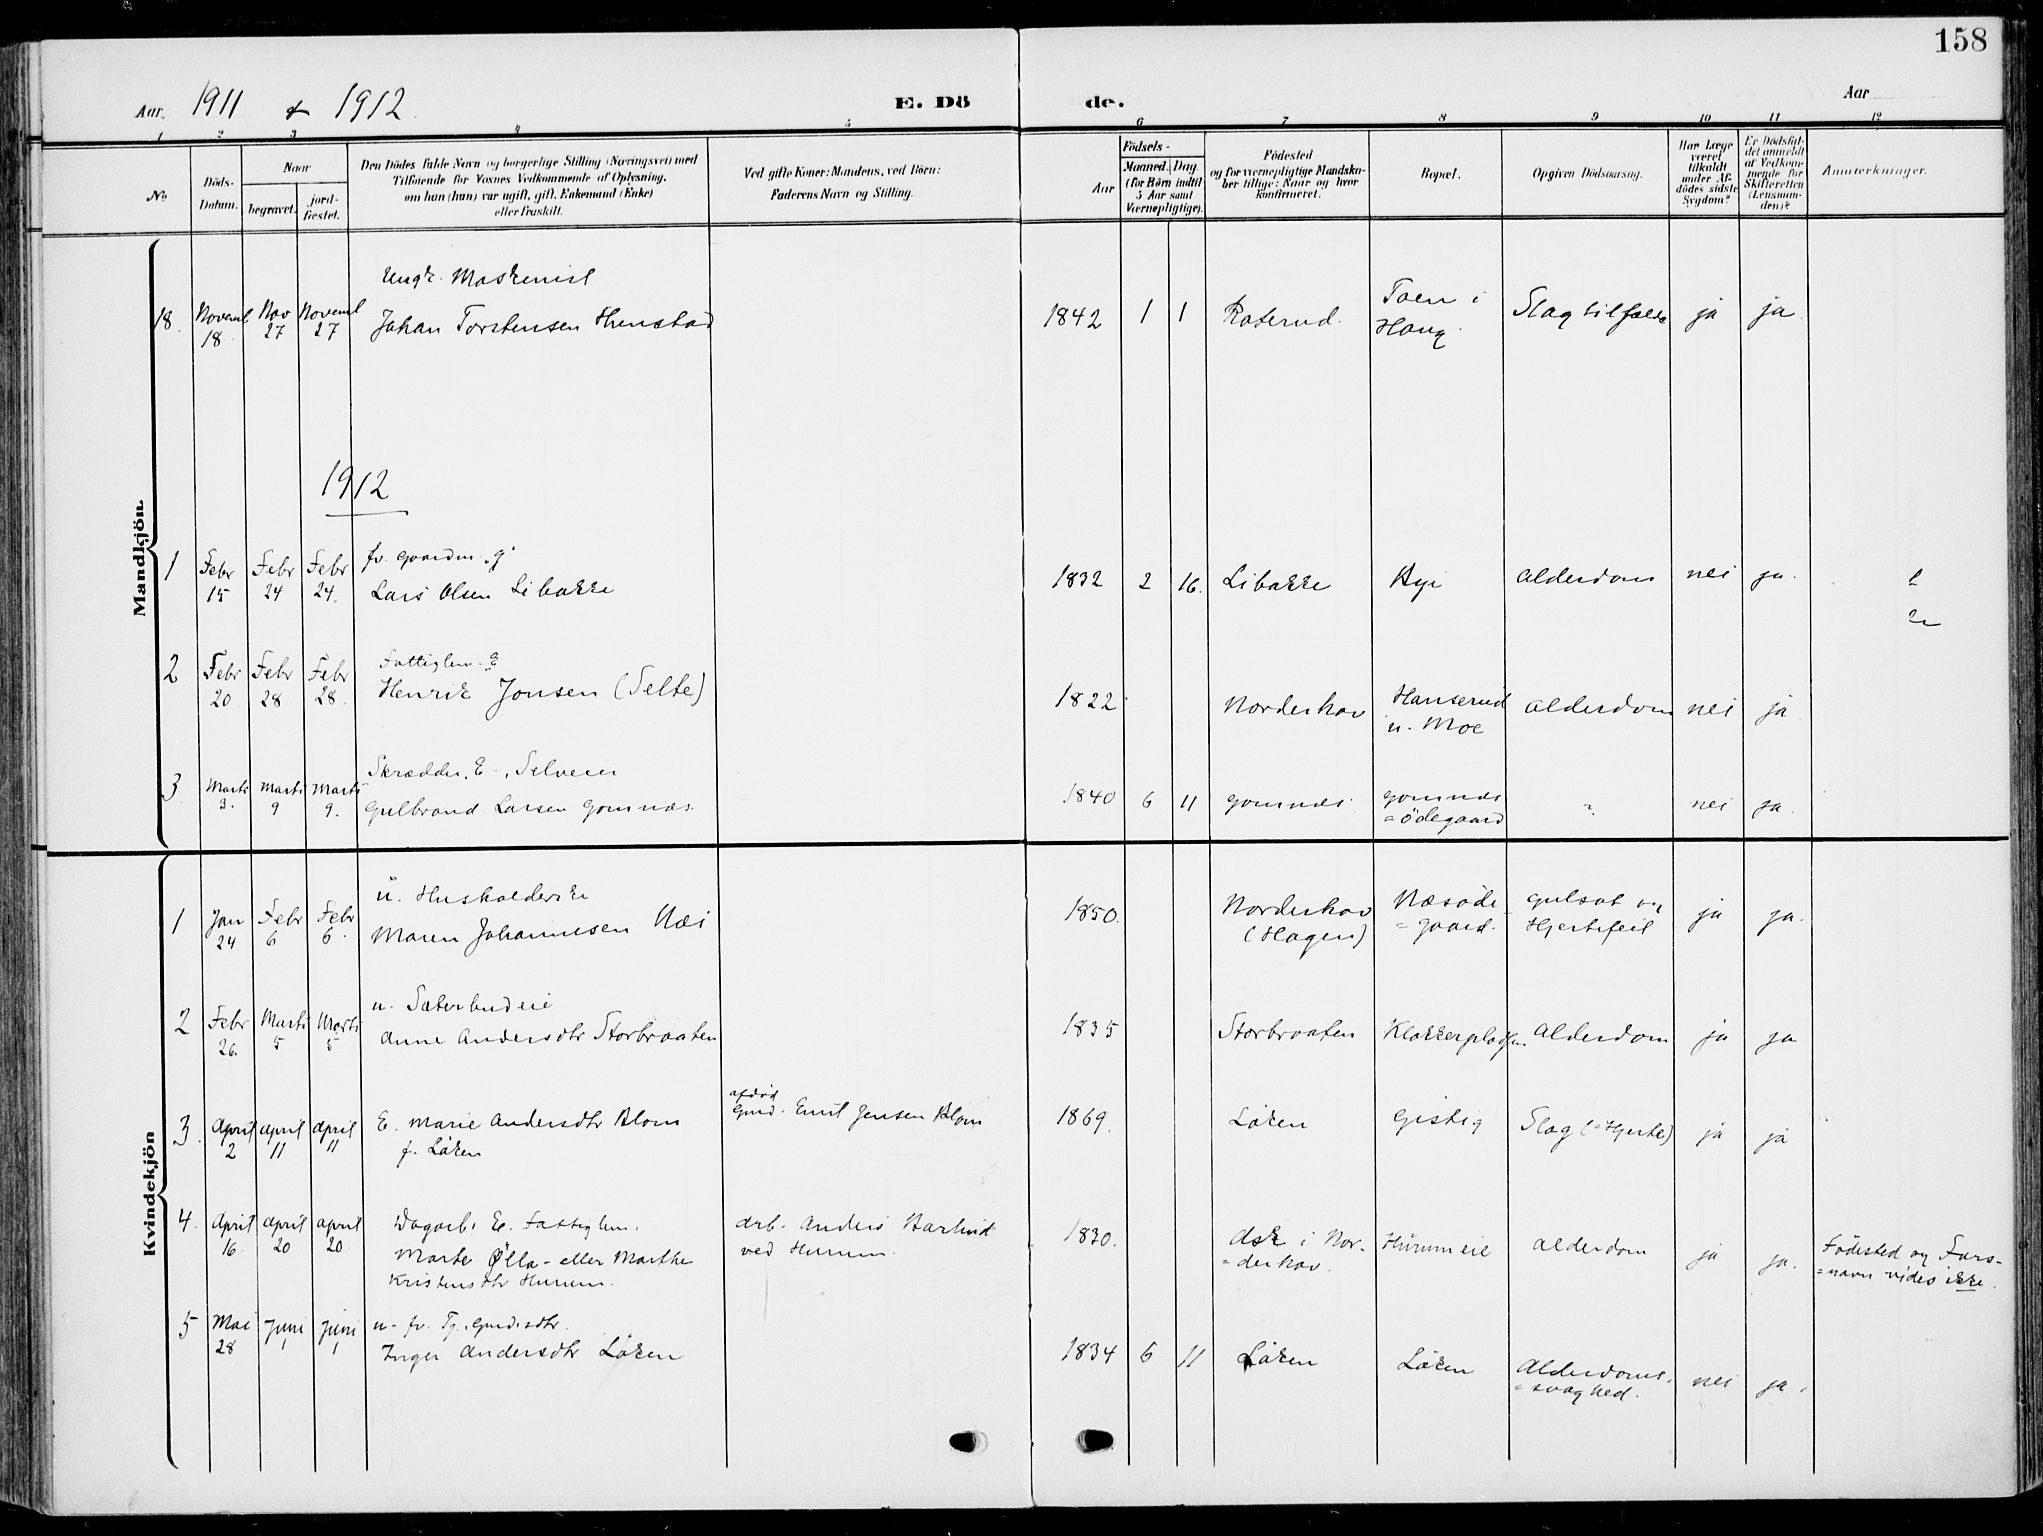 158
Aar 1911 & 1912 E. Dö de. Aar
1 2 3 4 5 6 7 8 9 10 11 12
No
Döds-
Datum.
Naar
begravet.
jord-
fæstet.
Den Dödes fulde Navn og borgerlige Stilling (Næringsvei) med
Tilföiende for Voxnes Vedkommende af Oplysning,
om han (hun) var ugift, gift, Enkemand (Enke)
eller fraskilt.
Ved gifte Koner: Mandens, ved Börn:
Faderens Navn og Stilling.
Födsels-
Aar
Maaned. Dag.
(for Börn indtil
5 Aar samt
Værnepligtige).
Födested
og for værnepligtige Mandska-
ber tillige: Naar og hvor
Konfirmeret.
Bopæl.
Opgiven Dödsaarsag.
Har Læge
været
tilkaldt
under Af-
dödes sidste
Sygdom?
Er Dödsfal-
det anmeldt
af Vedkom-
mende for
Skifteretten
(Lensman-
den)?
Anmærkninger.
Mandkjön.
Ungk. Maskinist
18. Noveml 18. Nov 27 Noveml 27 Johan Torstensen Henstad 1842 1 1 Roterud. Toen i Haug. Slagtilfælde ja ja.
1912
fv. Gaardm. g.
1 Febr 15 Febr 24 Febr 24. Lars Olsen Libakke 1832 2 16. Libakke Bye Alderdom nei ja.
Fattiglem - E
2 Febr 20. Febr 28 Febr 28. Henrik Jonsen (Selte) 1822 Norderhov Hanserud u. Moe Alderdom nei ja
Skrædder, E -, Selveier
3 Marts 3. Marts 9 Marts 9. Gulbrand Larsen Gomnæs. 1840 6 11 Gomnæs Gomnæs = ödegaard " nei ja.
Kvindekjön
u. Husholderske
1 Jan 24 Febr 6 Febr 6. Maren Johannesen Næs 1850. Norderhov (Hagen) Næsöde = gaard. Gulsot og Hjertefeil ja ja.
u. Sæterbudeie
2 Febr 26. Marts 5 Marts 5 Anne Andersdtr Storbraaten 1835 Storbraaten Klokkerpladsen Alderdom ja ja
3. April 2 April 11 April 11 E. Marie Andersdtr Blom f. Löken afdöd Gmd. Emil Jensen Blom 1869. Löken Gisti g Slag (= Hjerte) ja ja
4. April 16. April 20 April 20. Dagarb. E. Fattiglem.
Marte Ølla - eller Marthe
Kristensdtr Hurum.
arb. Anders
ved Hurum.
1830. Ask i Nor-
= derhov. Hurumeie Alderdom ja ja. Födested og Fars-
= navn vides ikke.
5 Mai 28 Juni 1 Juni 1 u. fv. Tj. Gmdsdtr.
Inger Andersdtr Löken 1834 6 11 Löken Löken Alderdoms.
= svaghed. nei ja.